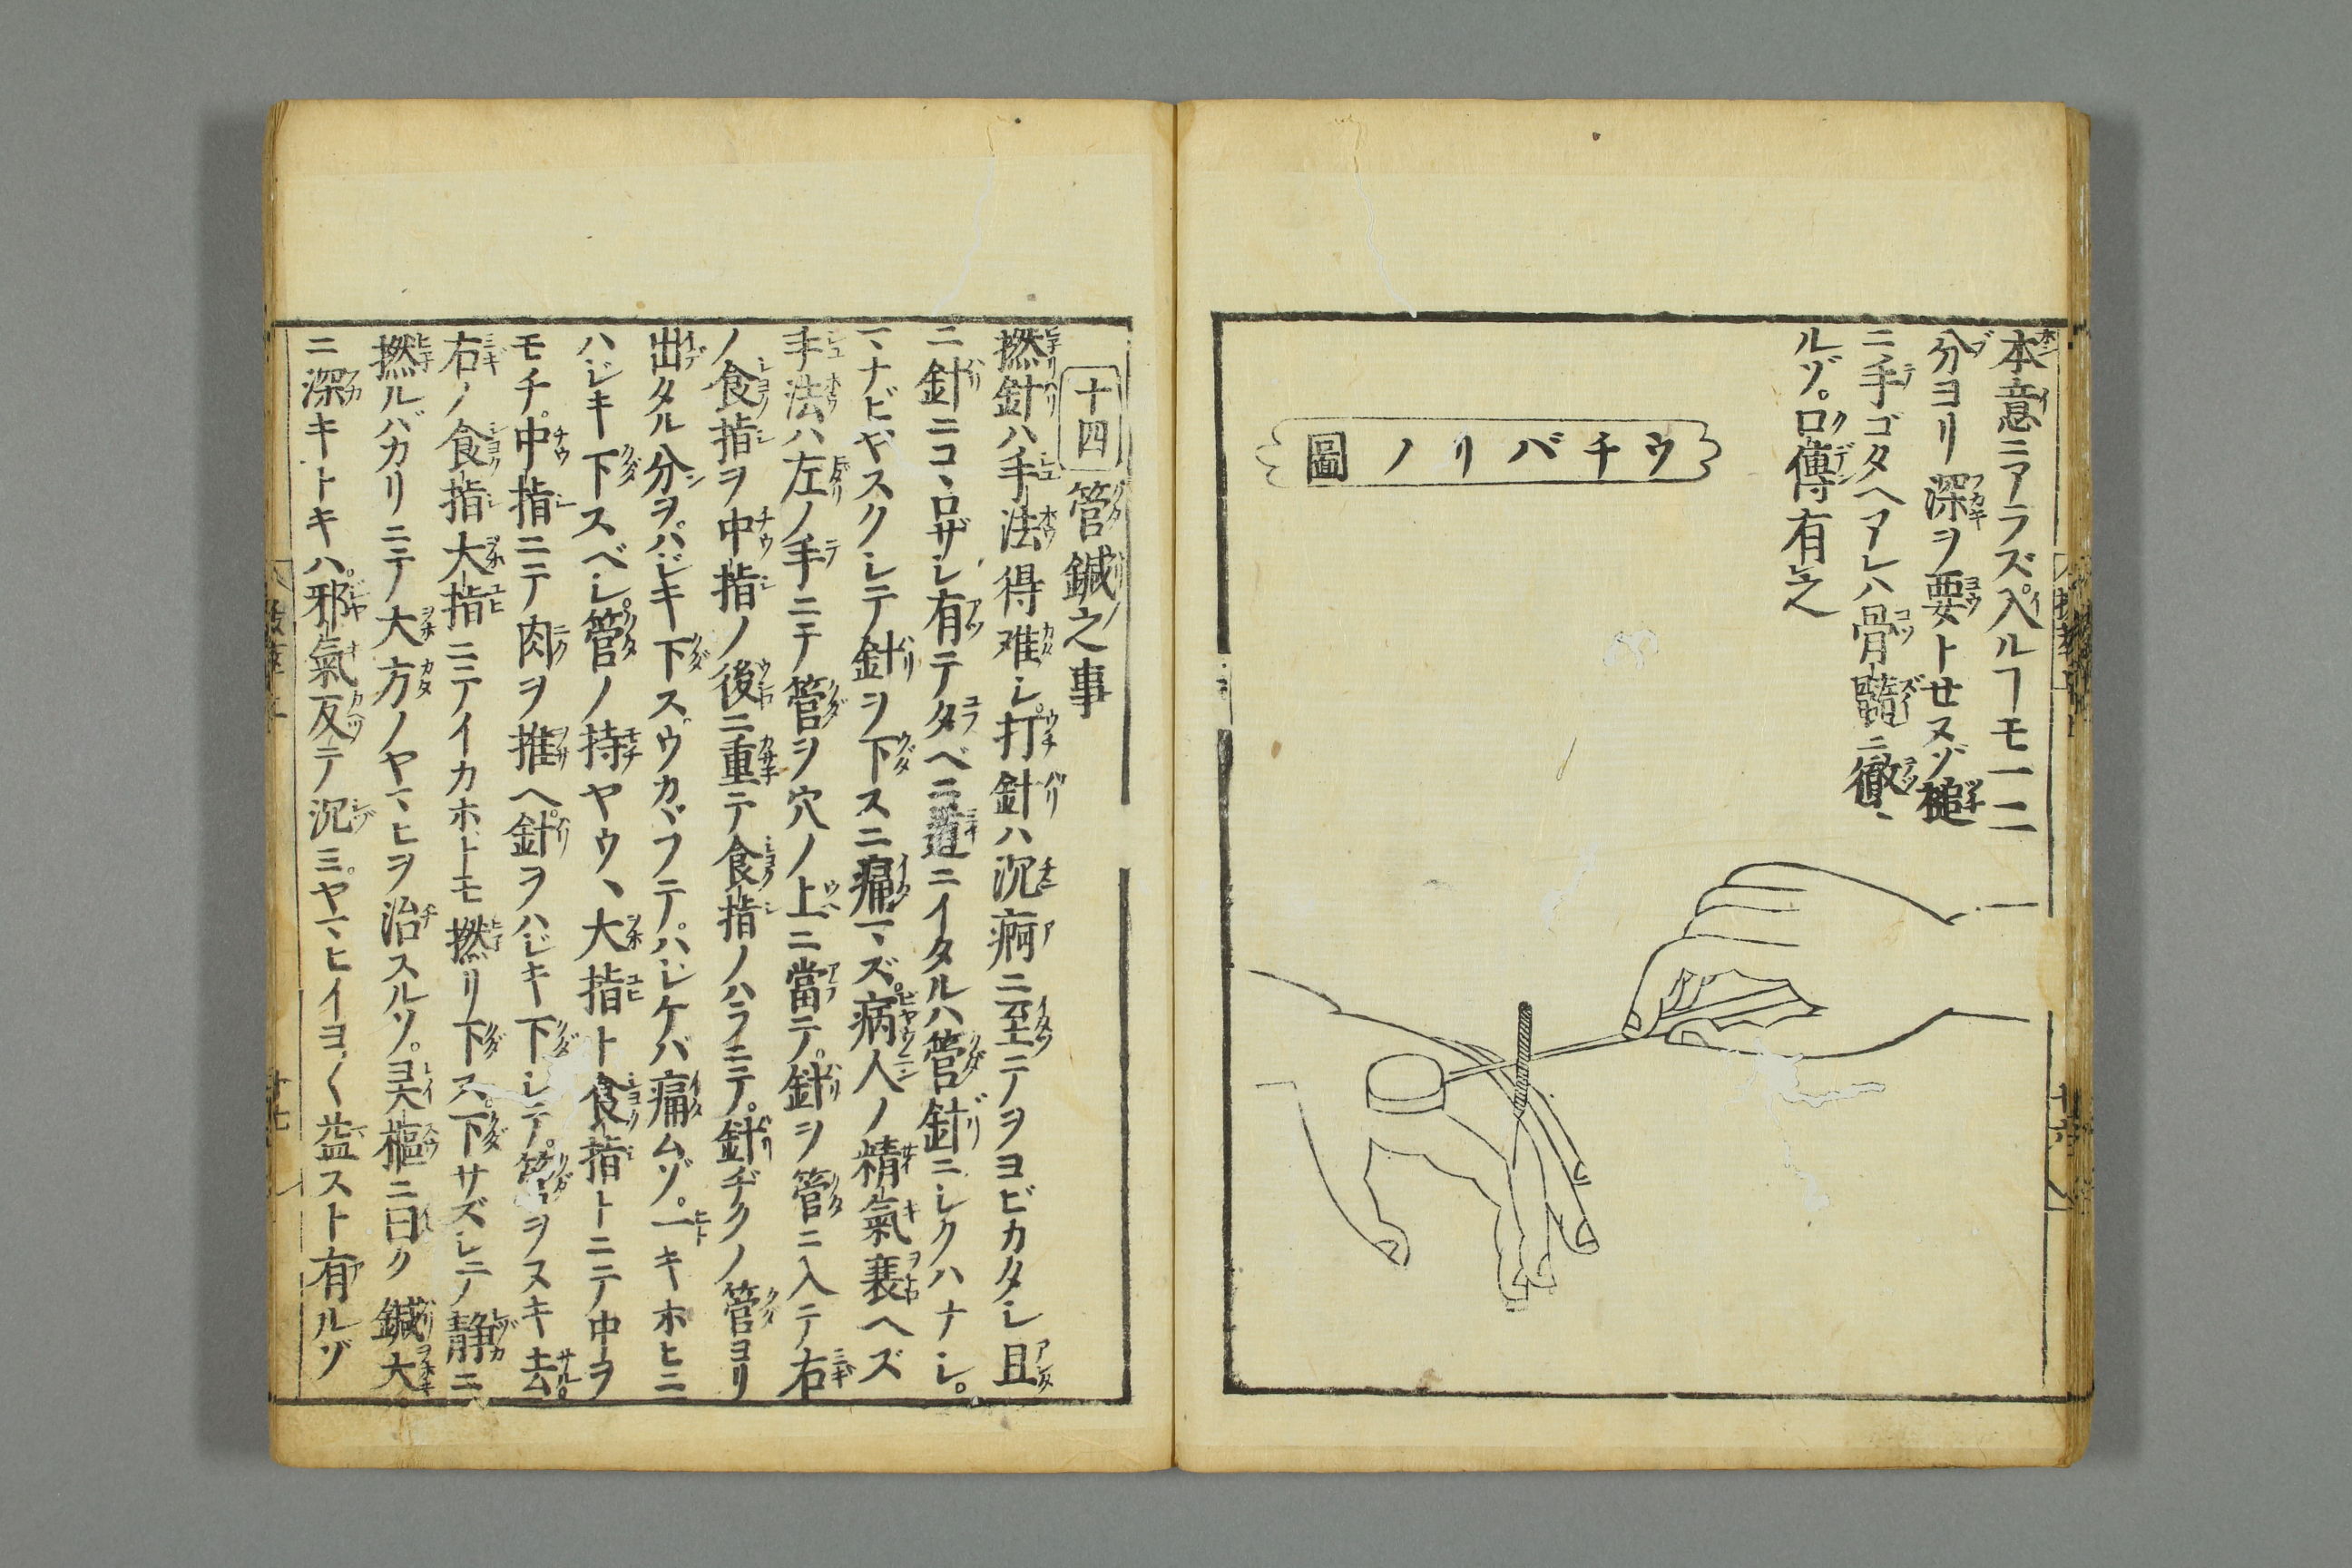 本意ニアラズ入ルヿモ一二
分ヨリ深ヲ要トせヌゾ槌
ニ手ゴタヘアレハ骨髓ニ徹、
ルゾ。口傳有之
ウチバリノ圖
十四 管鍼之事
撚針ハ手法得难シ。打針ハ沉痾ニ至テヲヨビカタシ且
ニ針ニコヽロザシ有テタベニ道ニイタルハ管針ニシクハナシ。
マナビヤスクシテ針ヲ下スニ痛マズ。病人ノ精氣衰ヘズ
手法ハ左ノ手ニテ管ヲ穴ノ上ニ當テ。針ヲ管ニ入テ右
ノ食指ヲ中指ノ後ニ重テ食指ノハラニテ。針ヂクノ管ヨリ
出タル分ヲハジキ下スウカヾフテハジケバ痛ムゾ。一キホヒニ
ハジキ下スベシ。管ノ持ヤウ、大指ト食指トニテ中ヲ
モチ。中指ニテ肉ヲ推ヘ。針ヲハジキ下シテ。管ヲヌキ去。
右ノ食指大指ニテイカホトモ撚リ下ス。下サズシテノ静ニ
撚ルバカリニテ大方ノヤマヒヲ治スルソ。灵樞ニ曰ク鍼大。
ニ深キトキハ。邪氣反テ沉ミ。ヤマヒイヨ〱益スト有ルゾ